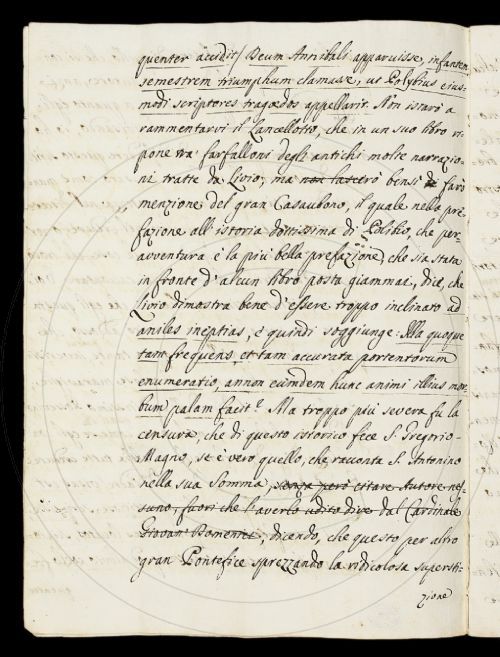 quenter accidit / Deum Annibali apparuisse, infantem
semestrem triumphum clamasse, ut Polybius eius-
modi scriptores tragoedos appellarit. Non istarò a
rammentarvi il Lancellotto, che in un suo libro ri-
pone tra' farfalloni degli antichi molte narrazio-
ni tratte da Livio; ma non lascerò bensì di farò
menzione del gran Casaubono, il quale nella pre-
fazione all'istoria dottissima di Polibio, che per-
avventura è la più bella prefazione, che sia stata
in fronte d'alcun libro posta giammai, dice, che
Livio dimostra bene d'essere troppo inclinato ad
aniles ineptias, e quindi soggiunge: Illa quoque
tam frequens, et tam accurata portentorum
enumeratio, annon eumdem hunc animi illius mor-
bum palam facit? Ma troppo più severa fu la
censura, che di questo istorico fece S. Gregorio
Magno, se è vero quello, che racconta S. Antonino
nella sua Somma, senza però citare Autore nes-
suno, fuori che l'averlo udito dire dal Cardinale
Giovan Domenici, dicendo, che questo per altro
gran Pontefice sprezzando la ridicolosa supersti-
zione